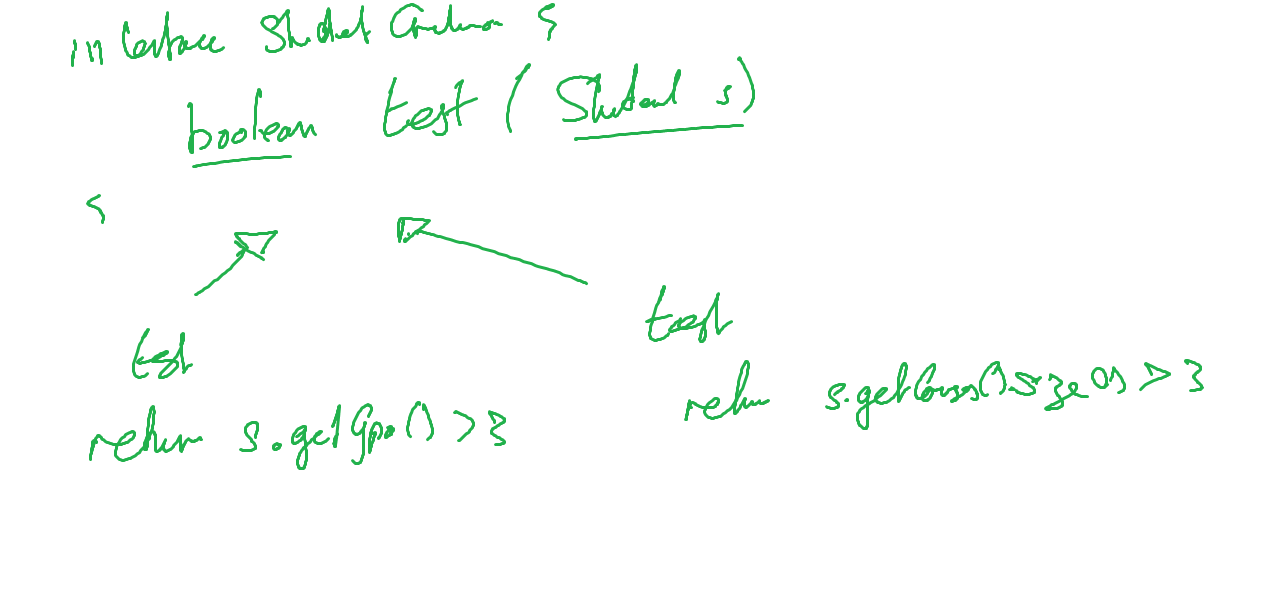 interface Student Criterion {
boolean test ( Student s )
}
test
return s.getGpa() > 3
test
return s.getCourses().size() > 3